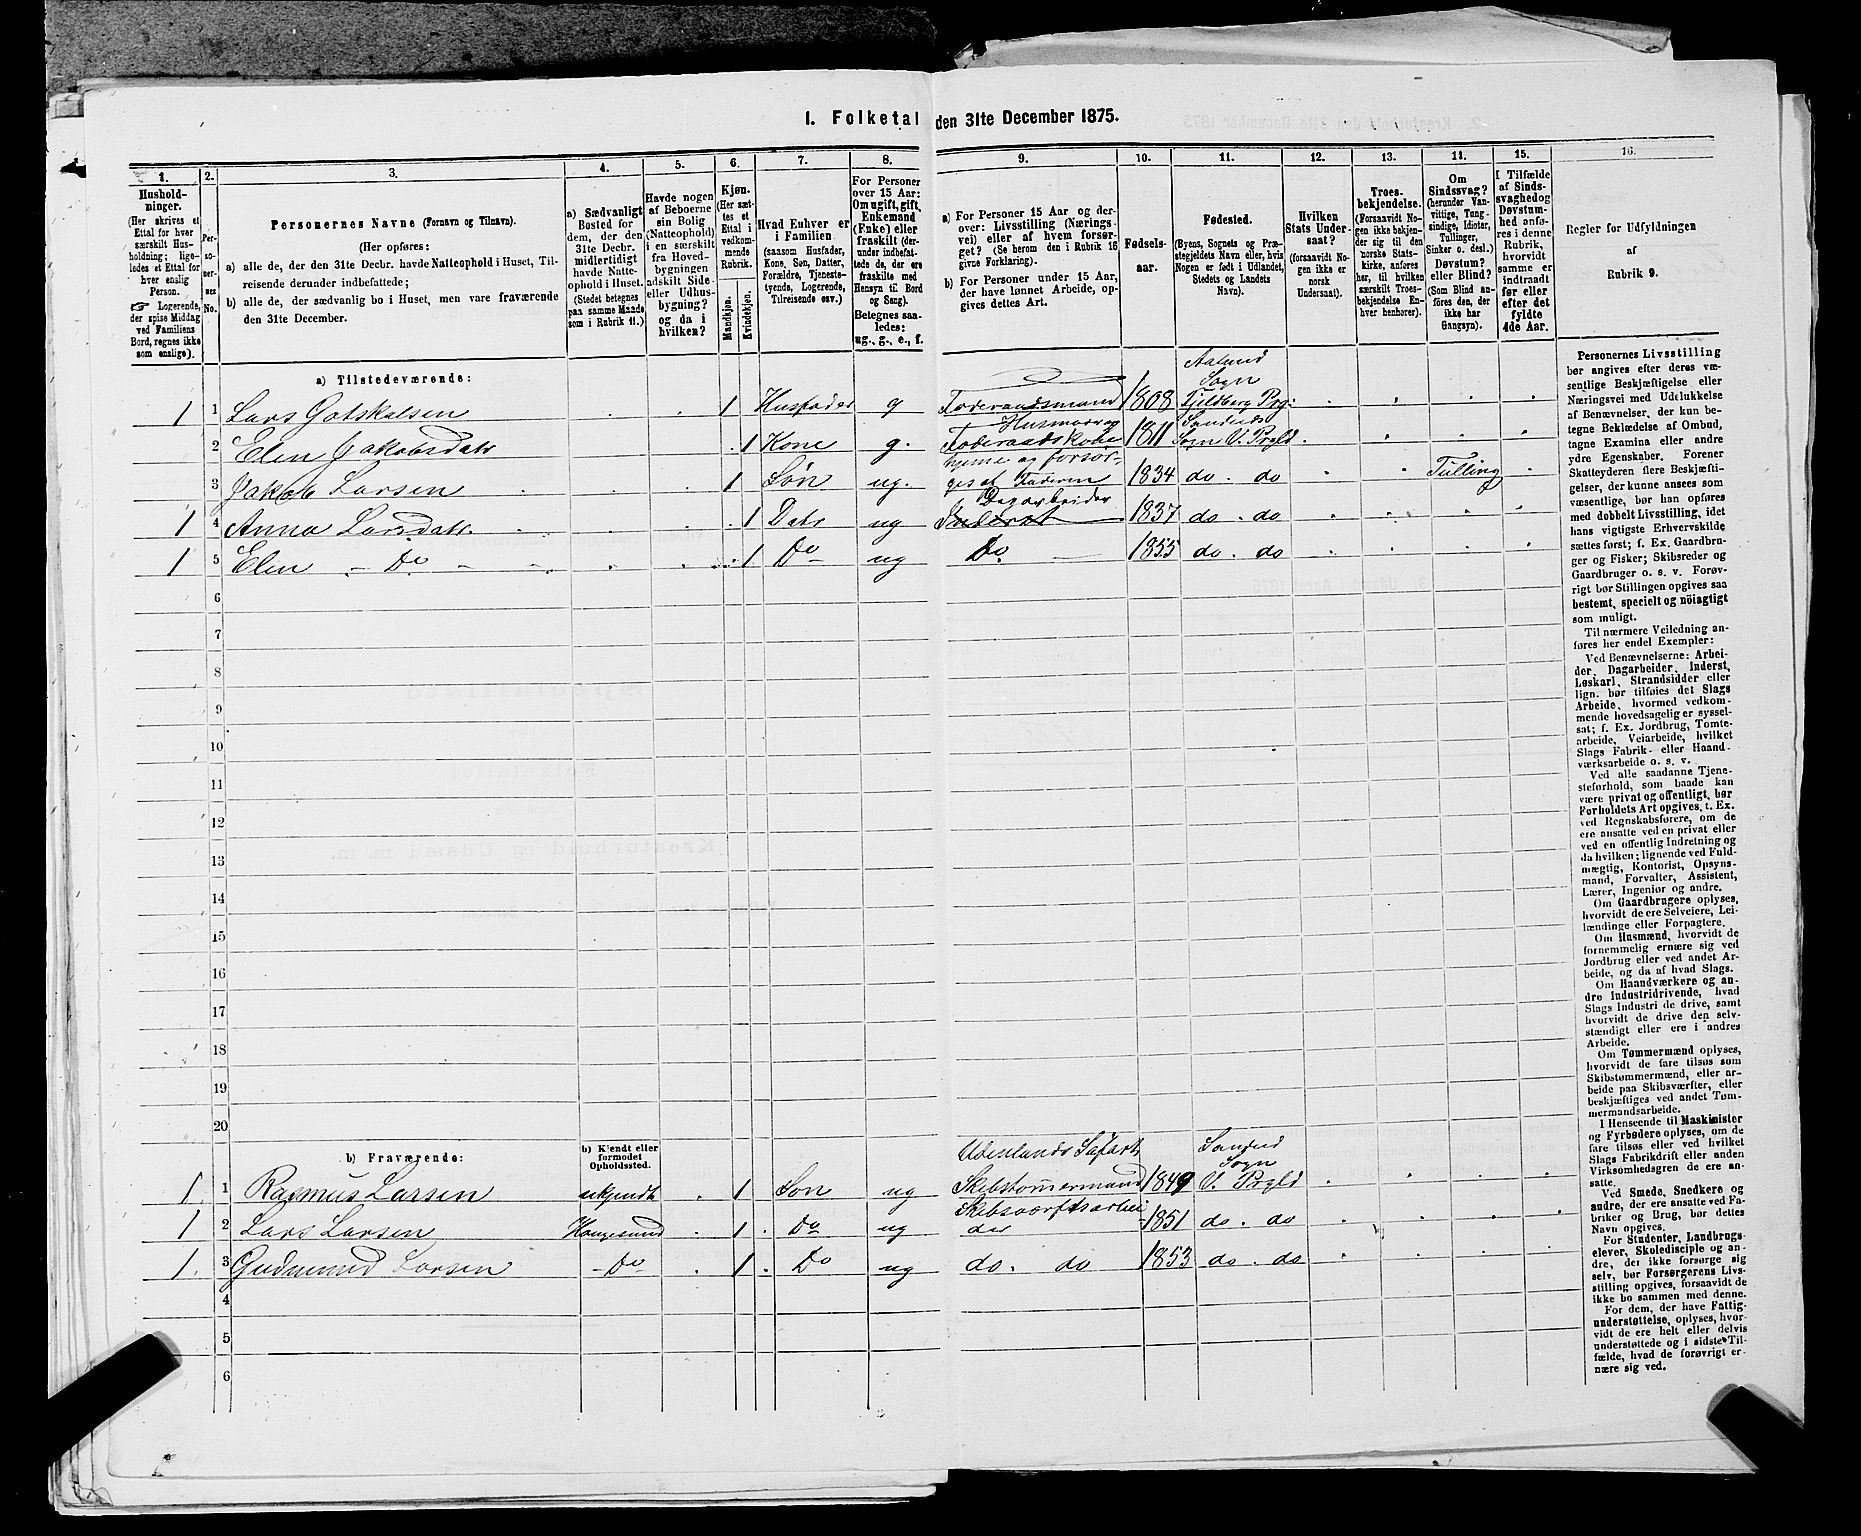 1. Folketal den 31te December 1875.
1. 2. 3. 4. 5. 6. 7. 8. 9. 10. 11. 12. 13. 14. 15. 16.
Hushold-
ninger.
(Her skrives et
Ettal for hver
særskilt Hus-
holdning; lige-
ledes et Ettal for
hver enslig
Person.
☞ Logerende,
der spise Middag
ved Familiens
Bord, regnes ikke
som enslige).
Per-
so-
ner-
nes
No.
Personernes Navne (Fornavn og Tilnavn).
(Her opføres:
a) alle de, der den 31te Decbr. havde Natteophold i Huset, Til-
reisende derunder indbefattede;
b) alle de, der sædvanlig bo i Huset, men vare fraværende
den 31te December.
a) Sædvanligt
Bosted for
dem, der den
31te Decbr.
midlertidigt
havde Natte-
ophold i Huset.
(Stedet betegnes
paa samme Maade
som i Rubrik 11.)
Havde nogen
af Beboerne
sin Bolig
(Natteophold)
i en særskilt
fra Hoved-
bygningen
adskilt Side-
eller Udhus-
bygning?
og da i
hvilken?
Kjøn.
(Her sæt-
tes et
Ettal i
vedkom-
mende
Rubrik.
Mandkjøn.
Kvindekjøn.
Hvad Enhver er
i Familien
(saasom Husfader,
Kone, Søn, Datter,
Forældre, Tjeneste-
tyende, Logerende,
Tilreisende osv.)
For Personer
over 15 Aar:
Om ugift, gift,
Enkemand
(Enke) eller
fraskilt (der-
under indbefat-
tede de, der ere
fraskilte med
Hensyn til Bord
og Seng).
Betegnes saa-
ledes:
ug., g., e., f.
a) For Personer 15 Aar og der-
over: Livsstilling (Nærings-
vei) eller af hvem forsør-
get? (Se herom den i Rubrik 16
givne Forklaring).
b) For Personer under 15 Aar,
der have lønnet Arbeide, op-
gives dettes Art.
Fødsels-
aar.
Fødested.
(Byens, Sognets og Præ-
stegjeldets Navn eller, hvis
Nogen er født i Udlandet,
Stedets og Landets
Navn).
Hvilken
Stats Under-
saat?
(forsaavidt No-
gen ikke er
norsk
Undersaat).
Troes-
bekjendelse.
(Forsaavidt No-
gen ikke bekjen-
der sig til den
norske Stats-
kirke, anføres
her, til hvilken
særskilt Troes-
bekjendelse En-
hver henhører).
Om
Sindssvag?
(herunder Van-
vittige, Tung-
sindige, Idioter,
Tullinger,
Sinker o. desl.)
Døvstum?
eller Blind?
(Som Blind an-
føres den, der
ikke har
Gangsyn).
I Tilfælde
af Sinds-
svaghed og
Døvstum-
hed anfø-
res i denne
Rubrik,
hvorvidt
samme er
indtraadt
før eller
efter det
fyldte
4de Aar.
Regler for Udfyldningen
af
Rubrik 9.
a) Tilstedeværende:
1 1 Lars Gotskalsen 1 Husfader g Føderaadsmand 1808 Aalund Sogn Fjeldberg Prg:
2 Elen Jakobsdatr 1 Kone g. Føderaadskone 1811 Sandeids Sogn V. Prgld
3 Jakob Larsen 1 Søn ug. hjeme og forsør-
ges af Faderen 1834 do. do Tulling
1 4 Anna Larsdatr. 1 Datr ug Inderst Dagarbeider 1837 do. do
1 5 Elen - Do - 1 Do ug Do. 1855 do. do
6
7
8
9
10
11
12
13
14
15
16
17
18
19
20
b) Fraværende:
b) Kjendt eller
formodet
Opholdssted.
1 1 Rasmus Larsen ukjendt 1 Søn ug Udenlands Søfart Skibstømermand 1849 Sandeid Sogn V. Prgld
1 2 Lars Larsen Haugesund 1 Do ug Skibsværftsarbei
der 1851 do. do
1 3 Gudmund Larsen - Do 1 Do ug do. do 1853 do. do
4
5
6
Personernes Livsstilling
bør angives efter deres væ-
sentlige Beskjæftigelse eller
Næringsvei med Udelukkelse
af Benævnelser, der kun be-
tegne Beklædelse af Ombud,
tagne Examina eller andre
ydre Egenskaber. Forener
Skatteyderen flere Beskjæfti-
gelser, der kunne ansees som
væsentlige, bør han opføres
med dobbelt Livsstilling, idet
hans vigtigste Erhvervskilde
sættes først; f. Ex. Gaardbru-
ger og Fisker; Skibsreder og
Gaardbruger o. s. v. Forøv-
rigt bør Stillingen opgives saa
bestemt, specielt og nöiagtigt
som muligt.
Til nærmere Veiledning an-
føres her endel Exempler:
Ved Benævnelserne: Arbei-
der, Dagarbeider, Inderst,
Løskarl, Strandsidder eller
lign. bør tilføies det Slags
Arbeide, hvormed vedkom-
mende hovedsagelig er syssel-
sat; f. Ex. Jordbrug, Tomte-
arbeide, Veiarbeide, hvilket
Slags Fabrik- eller Haand-
værksarbeide o. s. v.
Ved alle saadanne Tjene-
steforhold, som baade kan
være privat og offentligt, bør
Forholdets Art opgives, t. Ex.
ved Regnskabsførere, om de
ere ansatte ved en privat eller
ved en offentlig Indretning og
da hvilken; lignende ved Fuld-
mægtig, Kontorist, Opsyns-
mand, Forvalter, Assistent,
Lærer, Ingeniør og andre.
Om Gaardbrugere oplyses,
hvorvidt de ere Selveiere, Lei-
lændinge eller Forpagtere.
Om Husmænd, hvorvidt de
fornemmelig ernære sig ved
Jordbrug eller ved andet Ar-
beide, og da af hvad Slags.
Om Haandværkere og an-
dre Industridrivende, hvad
Slags Industri de drive, samt
hvorvidt de drive den selv-
stændigt eller ere i andres
Arbeide.
Om Tømmermænd oplyses,
hvorvidt de fare tilsøs som
Skibstømmermænd, eller ar-
beide paa Skibsværfter, eller
beskjæftiges ved andet Tøm-
mermandsarbeide.
I Henseende til Maskinister
og Fyrbødere oplyses, om de
fare tilsøs eller ved hvilket
Slags Fabrikdrift eller anden
Virksomhedsgren de ere an-
satte.
Ved Smede, Snedkere og
andre, der ere ansatte ved Fa-
briker og Brug, bør dettes
Navn opgives.
For Studenter, Landbrugs-
elever, Skoledisciple og an-
dre, der ikke forsørge sig
selv, bør Forsørgerens Livs-
stilling opgives, forsaavidt de
ikke bo sammen med denne.
For dem, der have Fattig-
understøttelse, oplyses, hvor-
vidt de ere helt eller delvis
understøttede og i sidste Til-
fælde, hvad de forøvrigt er-
nære sig ved.